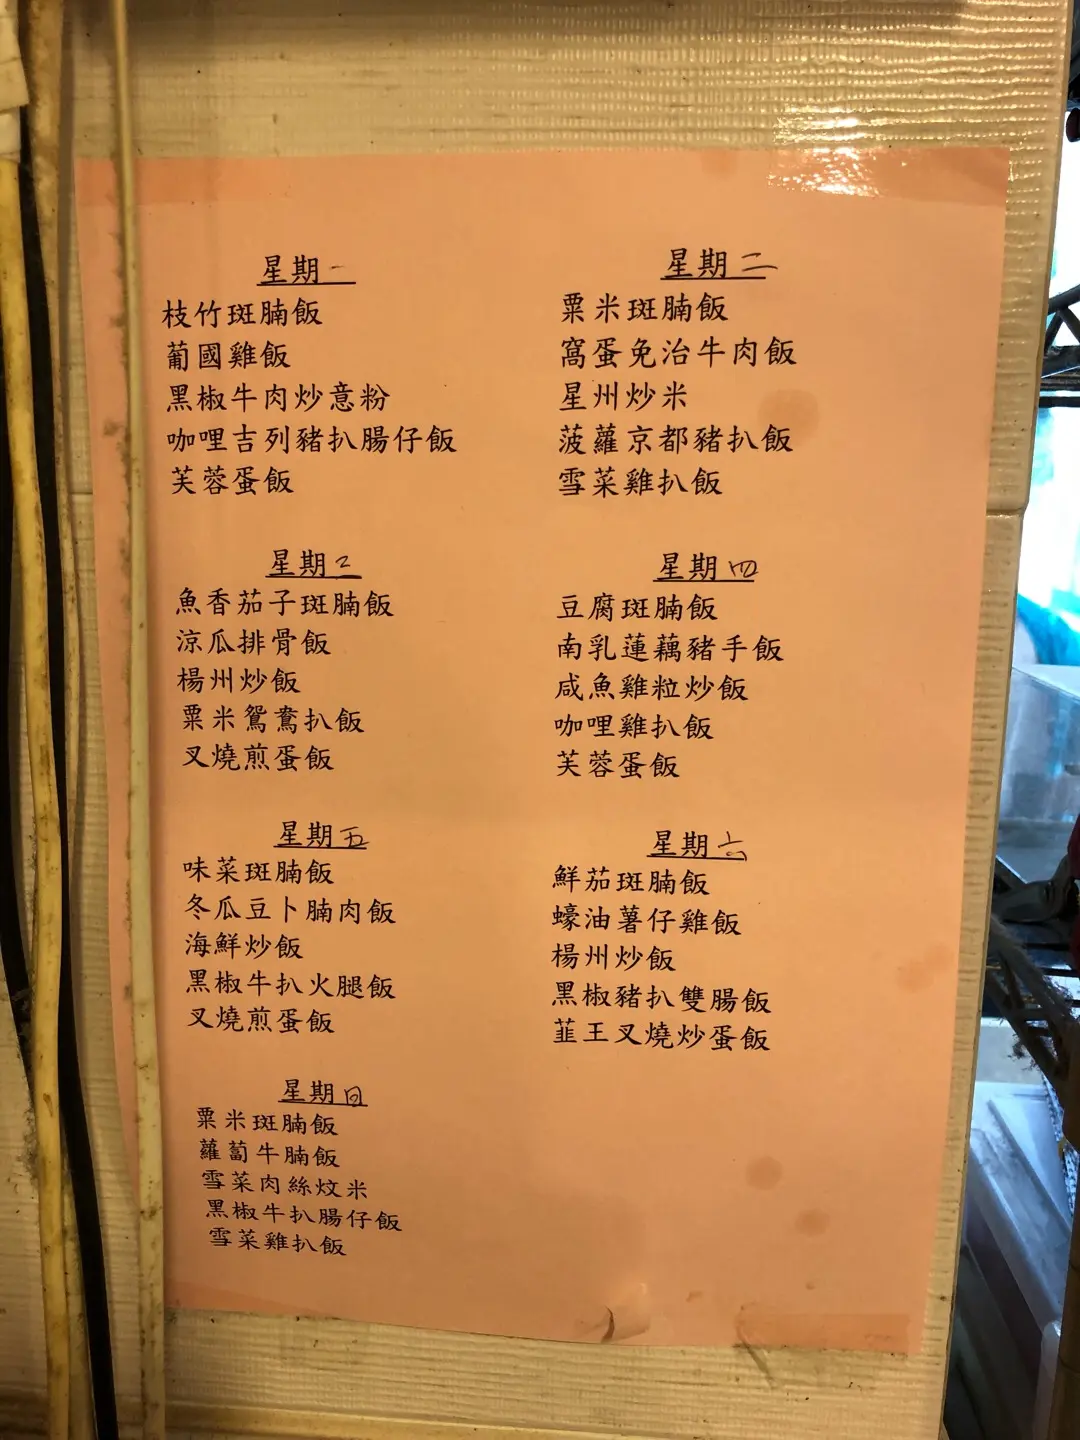 星期一
枝竹斑腩飯
葡國雞飯
黑椒牛肉炒意粉
咖哩吉列豬扒腸仔飯
芙蓉蛋飯
星期二
粟米斑腩飯
窩蛋免治牛肉飯
星州炒米
菠蘿京都豬扒飯
雪菜雞扒飯
星期三
魚香茄子斑腩飯
涼瓜排骨飯
楊州炒飯
粟米鴛鴦扒飯
叉燒煎蛋飯
星期四
豆腐斑腩飯
南乳蓮藕豬手飯
咸魚雞粒炒飯
咖哩雞扒飯
芙蓉蛋飯
星期五
味菜斑腩飯
冬瓜豆卜腩肉飯
海鮮炒飯
黑椒牛扒火腿飯
叉燒煎蛋飯
星期六
鮮茄斑腩飯
蠔油薯仔雞飯
楊州炒飯
黑椒豬扒雙腸飯
韮王叉燒炒蛋飯
星期日
粟米斑腩飯
蘿蔔牛腩飯
雪菜肉絲炆米
黑椒牛扒腸仔飯
雪菜雞扒飯